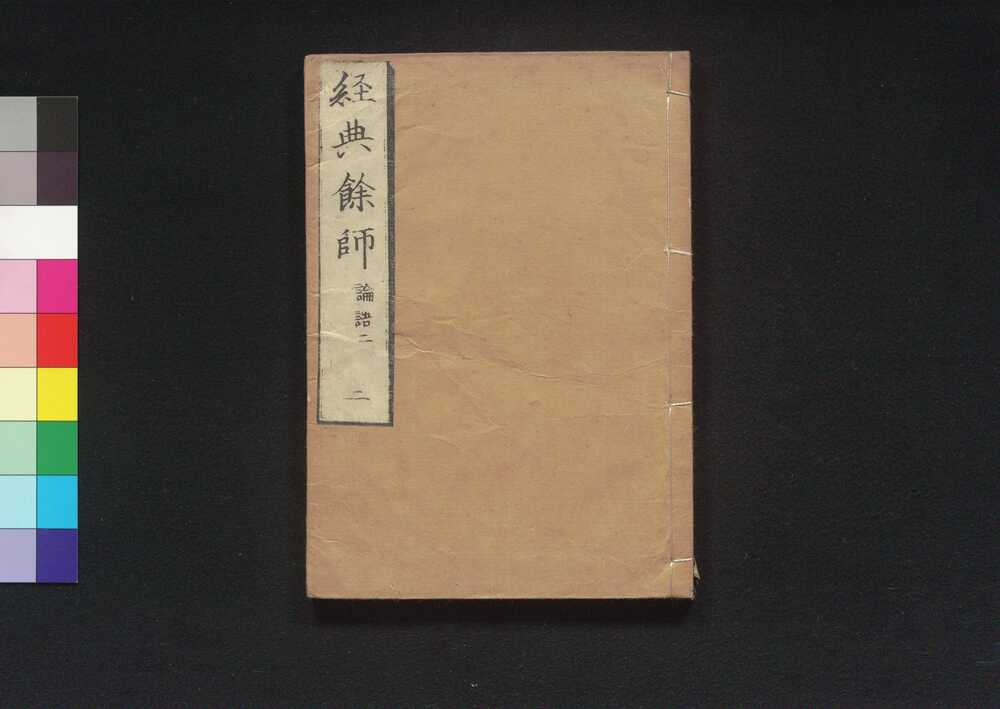 経典餘師
論語二
二